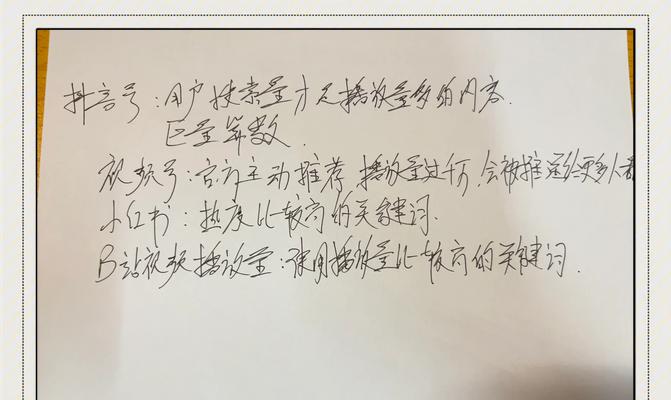 抖音号：用户搜索量才是播放量多的内容.
巨量算数.
视频号：官方主动推荐 播放量过千万,会被推送给更多人看
小红书：热度比较高的关键词.
B站视频播放量：使用播放量比较高的关键词.